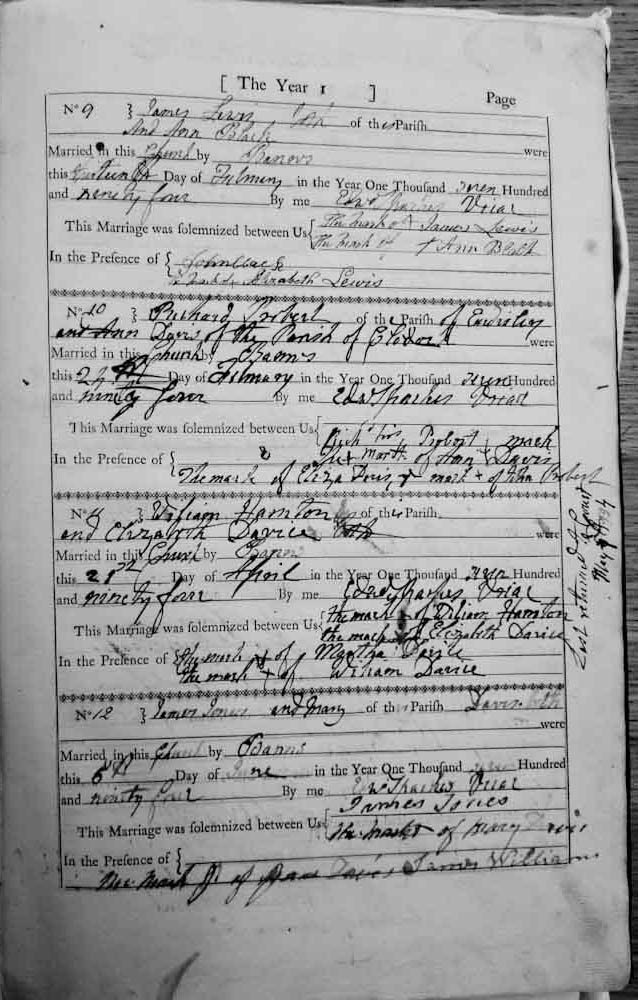 [ The Year 1 ]
Page
No 9 } James Lewis both of this Parish
And Ann Black were
Married in this Church by Banns
this Day of February in the Year One Thousand seven Hundred
and ninety four By me Edwd Vicar
This Marriage was solemnized between Us { The mark of James Lewis
The mark of + Ann Black
In the Presence of {
The mark of Elizabeth Lewis
No 10 } Richard Probert of the Parish of
and Ann Davis of the Parish of were
Married in this Church by Banns
this Day of February in the Year One Thousand seven Hundred
and ninety four By me Edwd Vicar
This Marriage was solemnized between Us { Rich his Probert + mark
The + Mark of Ann Davis
In the Presence of {
The mark of Eliza Davis + mark + of Probert
No 11 } William Hamton of this Parish
and Elizabeth Davice both were
Married in this Church by Banns
this 21st Day of April in the Year One Thousand seven Hundred
and ninety four By me Edwd Vicar
This Marriage was solemnized between Us { The mark + of William Hamton
the mark of Elizabeth Davice
In the Presence of { The mark + of Martha Davice
the mark + of William Davice
Last returned a Court May 1794
No 12 } James Jones and Mary of this Parish Davis both
were
Married in this Church by Banns
this 6th Day of June in the Year One Thousand seven Hundred
and ninety four By me Edwd Vicar
James Jones
This Marriage was solemnized between Us { The mark + of Mary Davis
In the Presence of {
The Mark of James Williams